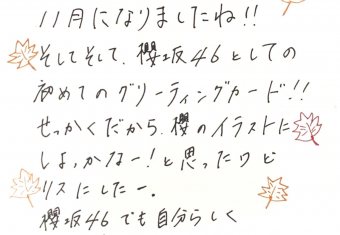 11月になりましたね!!
そしてそして、櫻坂46としての
初めてのグリーティングカード!!
せっかくだから、櫻のイラストに
しよっかなー!と思ったケド
リスにしたー。
櫻坂46でも自分らしく